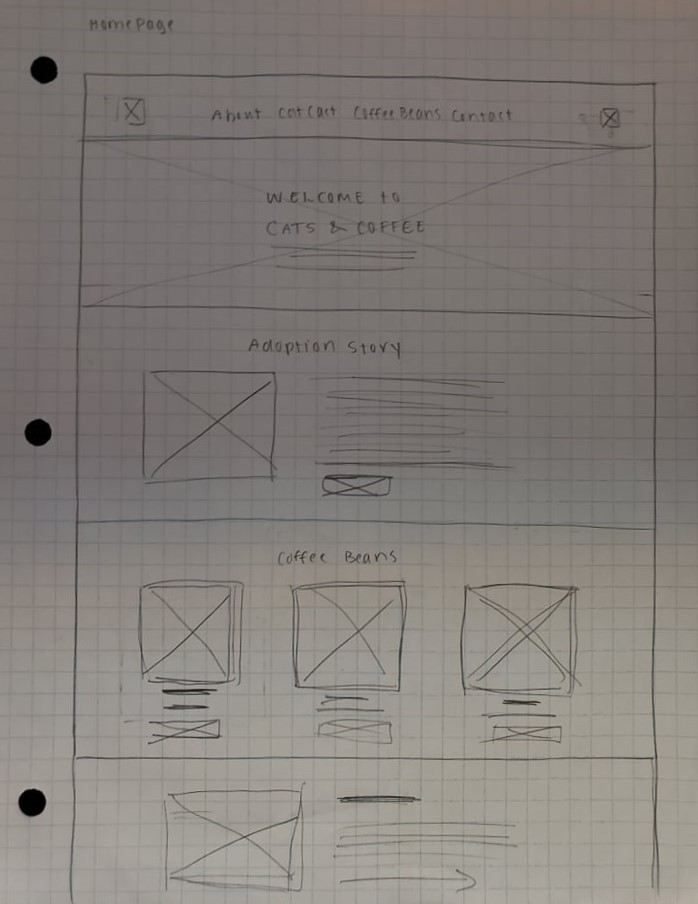 HomePage
About CatCact CoffeeBeans Contact
WELCOME to
CATS & COFFEE
Adoption Story
Coffee Beans